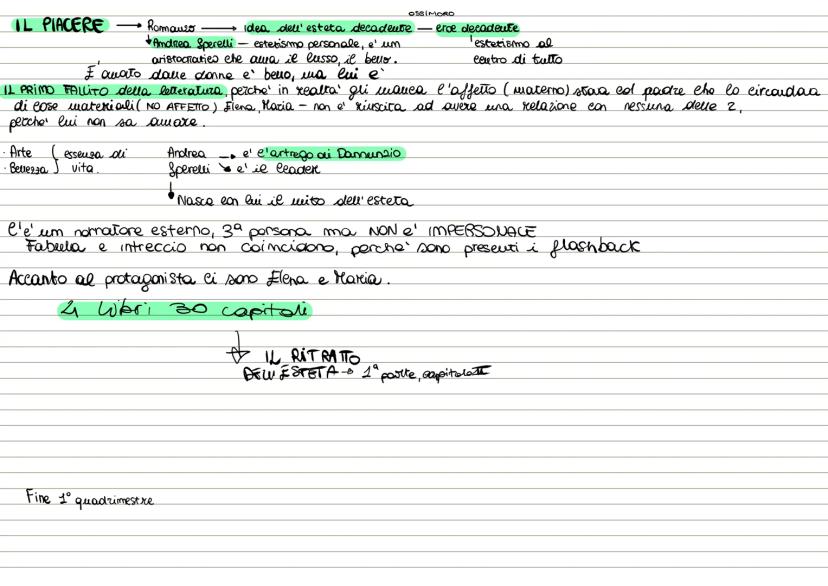 OSSIMORO
IL PIACERE → Romanzo → idea dell'esteta decadente — eroe decadente
Andrea Sperelli — estetismo personale, e' un estetismo al
aristocratico che ama il lusso, il bello. centro di tutto
È amato dalle donne e' bello, ma lui e'
IL PRIMO FALLITO della letteratura, perche' in realta' gli manca l'affetto (materno) stava col padre che lo circondava
di cose materiali (NO AFFETTO) Elena, Maria – non e' riuscito ad avere una relazione con nessuna delle 2,
perche' lui non sa amare.
· Arte { essenza di Andrea → e' l'artrego di Dannunzio
· Bellezza } vita. Sperelli ↘ e' il leader
Nasce con lui il mito dell'esteta
C'e' un narratore esterno, 3ª persona ma NON e' IMPERSONALE
Fabula e intreccio non coincidono, perche' sono presenti i flashback
Accanto al protagonista ci sono Elena e Maria.
4 libri 30 capitoli
IL RITRATTO
DELL'ESTETA → 1ª parte, capitolo II
Fine 1° quadrimestre